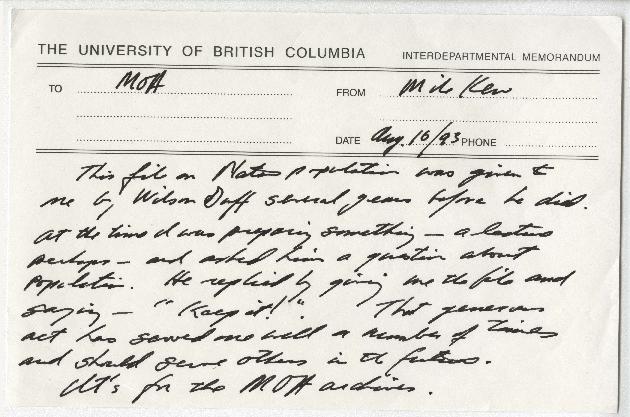 THE UNIVERSITY OF BRITISH COLUMBIA INTERDEPARTMENTAL MEMORANDUM
TO MOA FROM Mike Kew
DATE Aug 16/93 PHONE
This file on Native population was given to
me by Wilson Duff several years before he died.
At the time I was preparing something – a lecture
perhaps – and asked him a question about
population. He replied by giving me the file and
saying – "Keep it!". That generous
act has served me well a number of times
and should serve others in the future.
It's for the MOA archives.